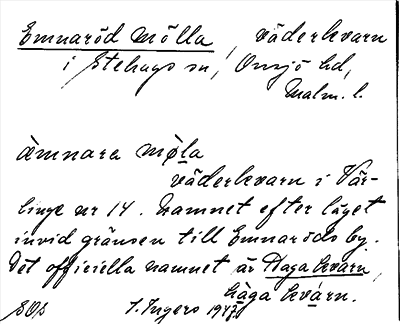 Emnaröd Mölla, väderkvarn
i Stehags sn, Onsjö hd,
Malm. l.
àmnara mø̀la
väderkvarn i Vär-
linge nr 14. Namnet efter läget
invid gränsen till Emnaröds by.
Det officiella namnet är Haga kvarn,
hàga kvárn.
SOs I. Ingers 1947.